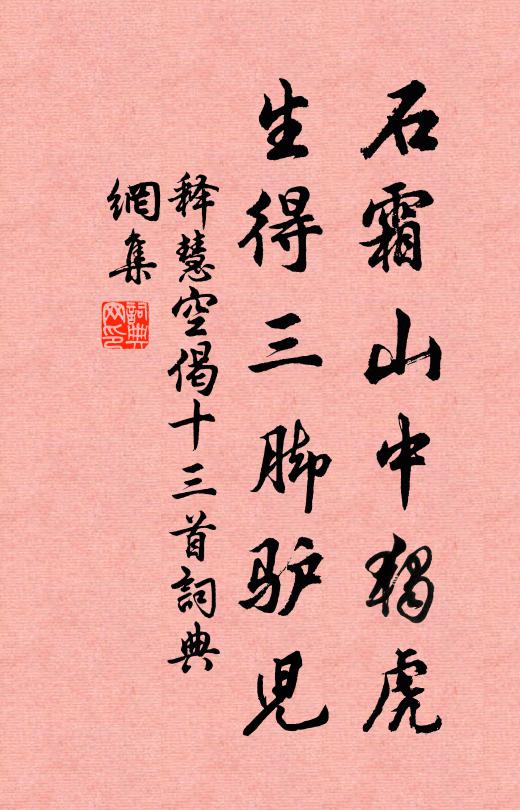 石霜山中獨虎
生得三脚驴児
释慧空偈十三首詞典
網集
詞典
网印